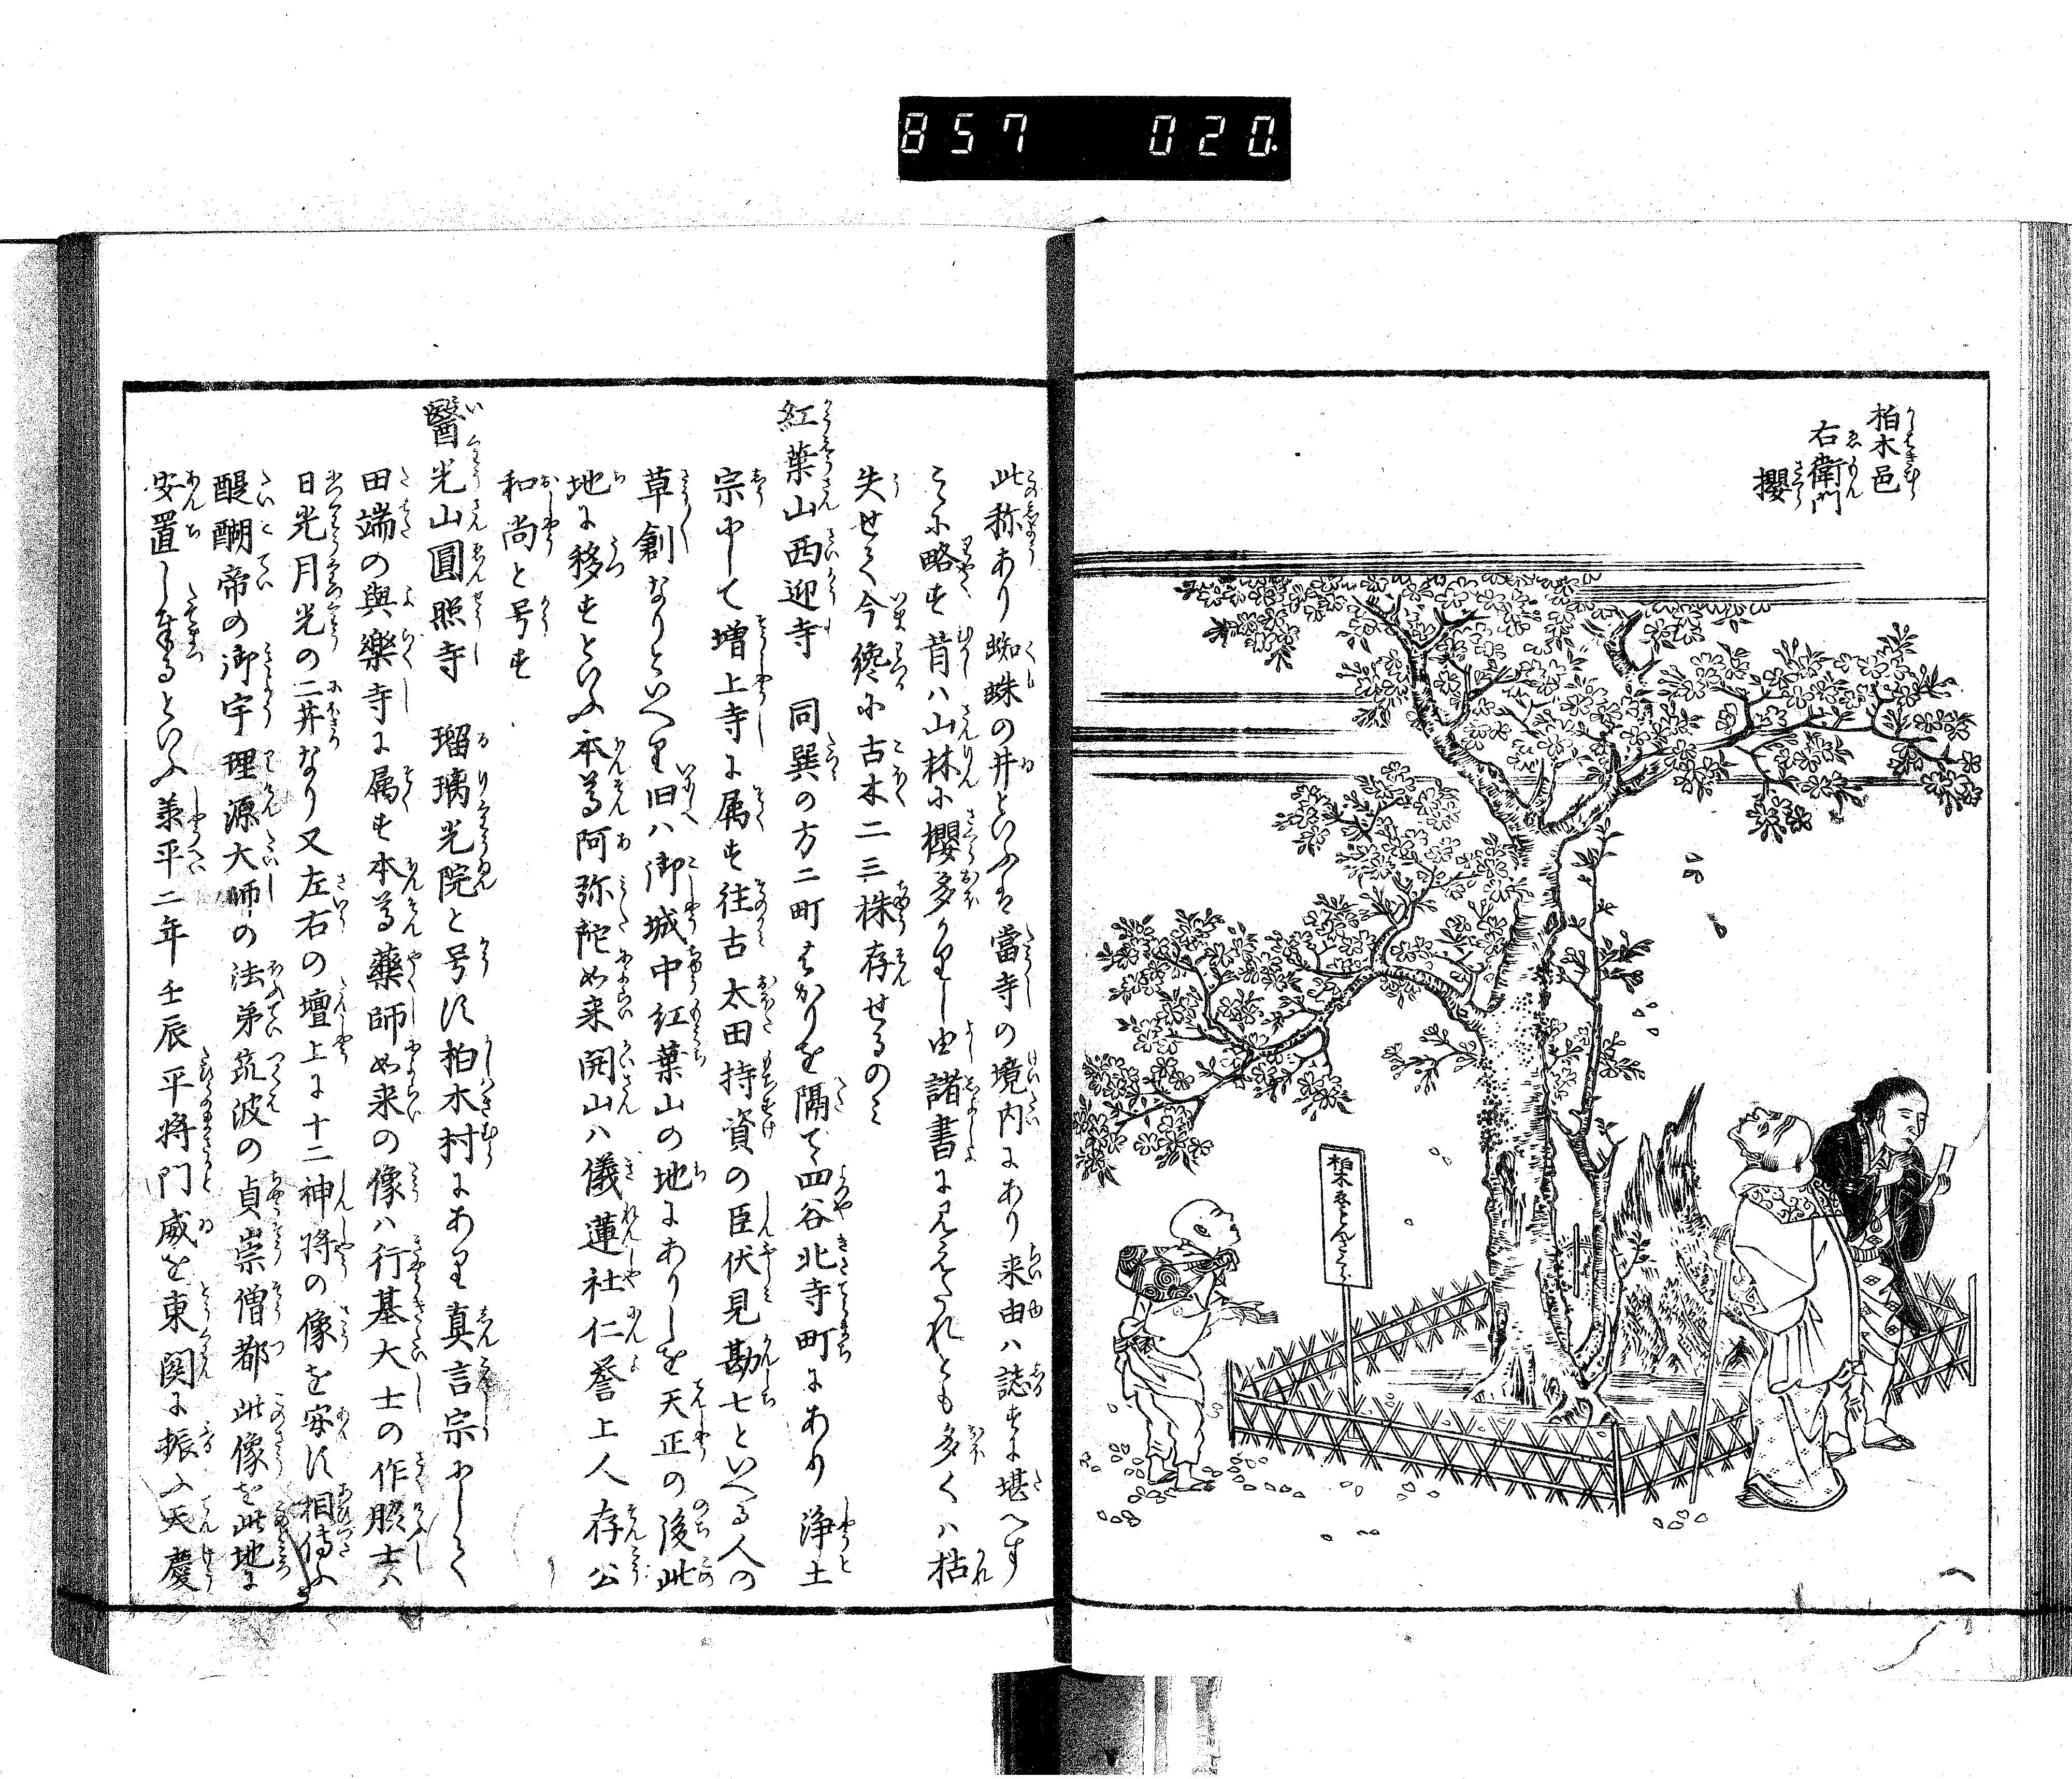 857 020.
柏木邑
右衛門
櫻
柏木ゑもんさくら
此称あり蜘蛛の井といふは當寺の境内にあり来由ハ誌すに堪へす
こゝに略す昔ハ山林に櫻多かりし由諸書に見えたれとも多くハ枯
失せて今纔に古木二三株存せるのミ
紅葉山西迎寺 同巽の方二町はかりを隔て四谷北寺町にあり浄土
宗にして増上寺に属す往古太田持資の臣伏見勘七といへる人の
草創なりといへり旧ハ御城中紅葉山の地にありしを天正の後此
地に移すといふ本尊阿弥陀如来開山ハ儀蓮社仁誉上人存公
和尚と号す
醫光山圓照寺 瑠璃光院と号す柏木村にあり真言宗にして
田端の與樂寺に属す本尊藥師如来の像ハ行基大士の作脇士ハ
日光月光の二井なり又左右の壇上に十二神将の像を安す相傳ふ
醍醐帝の御宇理源大師の法弟筑波の貞崇僧都此像を此地に
安置し奉るといふ承平二年壬辰平将門威を東関に振ふ天慶